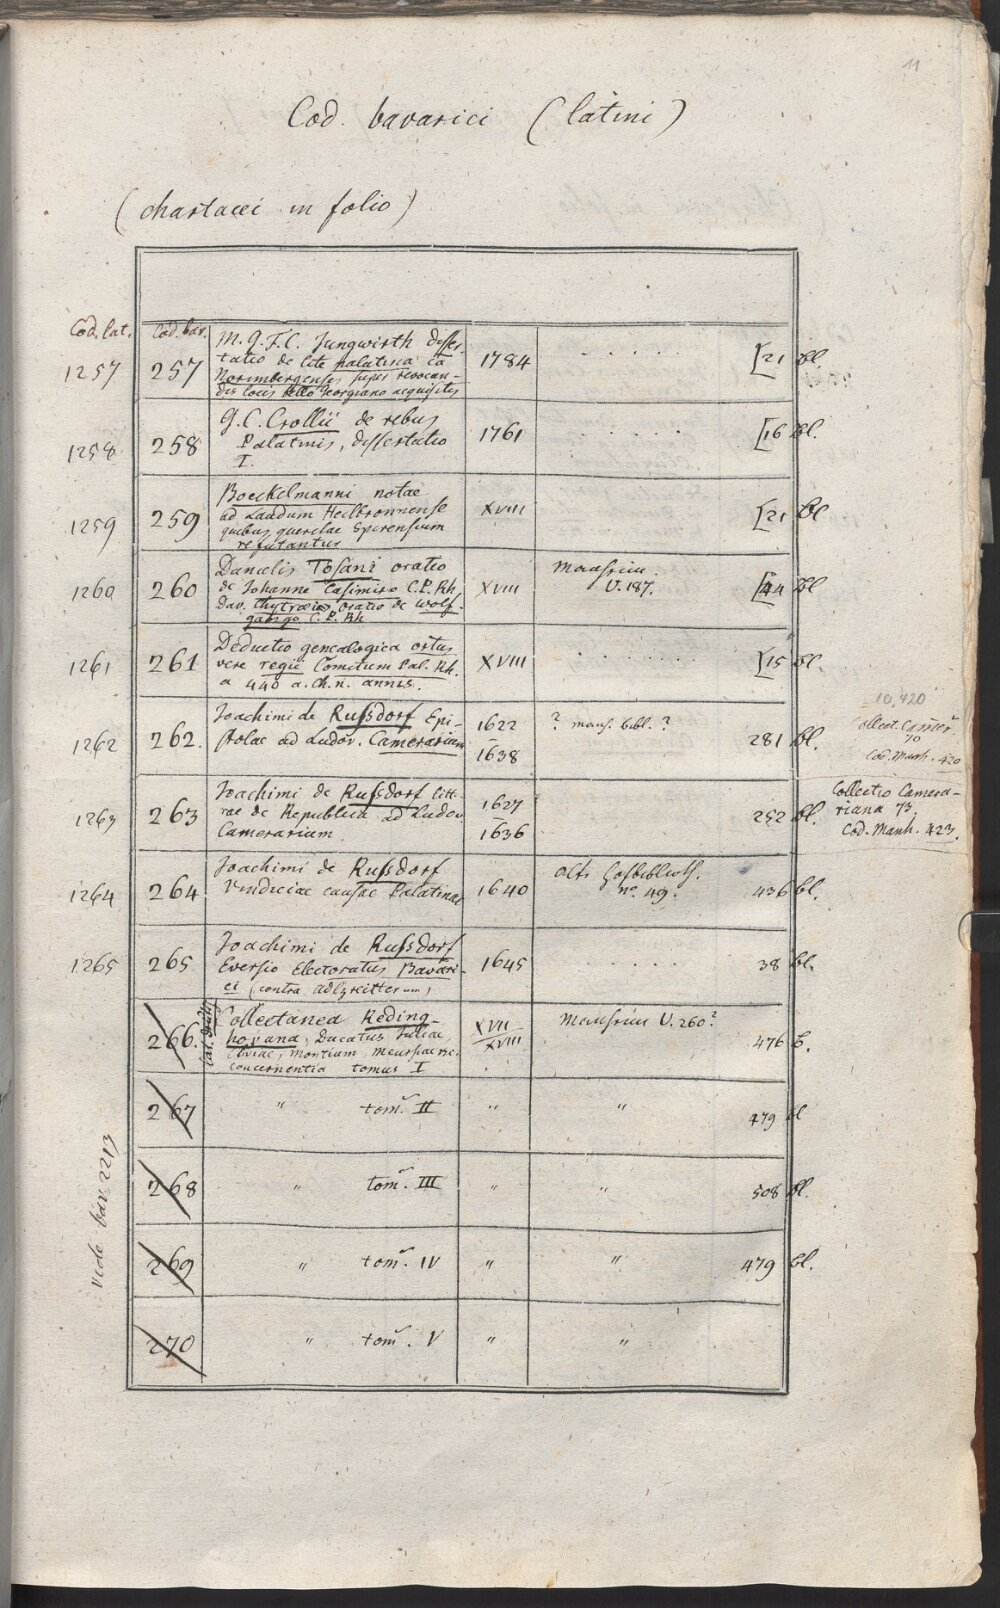 11
Cod. bavarici (latini)
(chartacei in folio)
Cod. lat. Cod. bav.
1257 257 M. G. F. C. Jungwirth disser-
tatio de lite palatina ca
Norimbergenses super revocan-
dis locis bello Georgiano acquisitis
1784 . . . . . [21 Bl.
1258 258 G. C. Crollii de rebus
Palatinis, dissertatio
I.
1761 . . . . . [16 Bl.
1259 259 Boeckelmanni notae
ad Laudum Heilbronnense
quibus querelae Spirensium
refutantur
XVIII [21 Bl
1260 260 Danielis Tossani oratio
de Johanne Casimiro C. P. Rh
Dav. Chytraei oratio de Wolf-
gango C. P. Rh
XVIII
U. 187. [44 Bl
1261 261 Deductio genealogica ortus
vere regii Comitum Pal. Rh.
a 440 a. Ch. n. annis.
XVIII . . . . . . [15 Bl.
1262 262. Joachimi de Russdorf Epi-
stolae ad Ludov. Camerarium
1622
–
1638
? manh. bibl. ? 281 Bl.
10,420
Collect. Camer.
70
Cod. Manh. 420
1263 263 Joachimi de Russdorf litt-
rae de Republica ad Ludov
Camerarium
1627
–
1636
252 Bl.
Collectio Camera-
riana 73.
Cod. Manh. 423.
1264 264 Joachimi de Russdorf
Vindiciae causae Palatinae
1640
alte Hofbiblioth.
no. 49. 436 bl.
1265 265 Joachimi de Russdorf
Eversio Electoratus Bavari-
ci (contra Adlzreitterum)
1645 . . . . 38 bl.
266. Collectanea Reding-
hovana, Ducatus Juliae
Cliviae, Montium, Meursiae &c.
concernentia tomus I
XVII
XVIII
U. 260? 476 B.
267 " tom. II " " 479 bl
268 " tom. III " " 508 Bl.
269 " tom. IV " " 479 bl.
270 " tom. V " "
vide bav. 2213